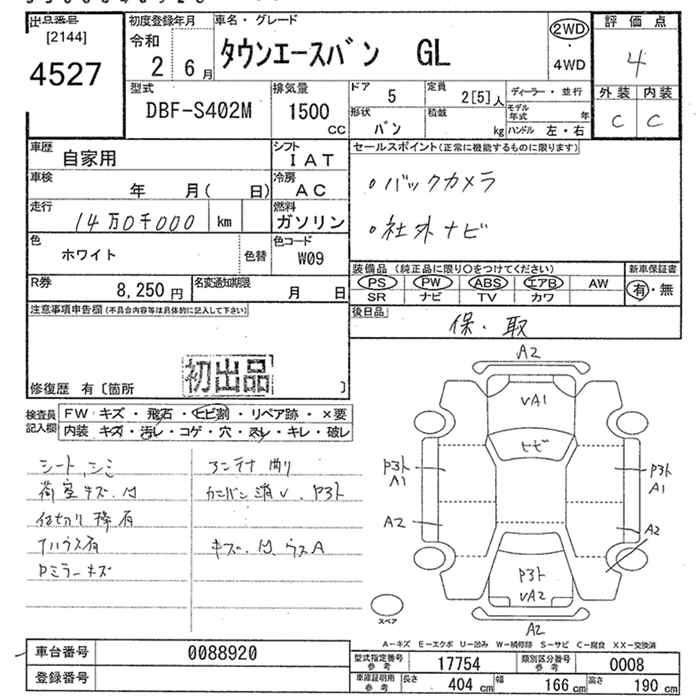 出品番号
[2144]
4527
初度登録年月
令和
2 6月
車名・グレード
タウンエースバン GL
2WD
・
4WD
評価点
4
外装 内装
C C
型式
DBF-S402M
排気量
1500
CC
ドア 5
定員 2[5]人
形状 バン
積載 kg
ディーラー・並行
モデル年式 年
ハンドル 左・右
車歴 自家用
シフト IAT
車検 年 月( 日)
冷房 AC
走行 14万0千000 km
燃料 ガソリン
色 ホワイト
色替
色コード W09
R券 8,250円
名変通知期限 月 日
セールスポイント(正常に機能するものに限ります)
・バックカメラ
・社外ナビ
装備品 (純正品に限り○をつけてください)
新車保証書
PS PW ABS エアB AW
SR ナビ TV カワ
有・無
後日品
保・取
注意事項申告欄(不具合内容等は具体的に記入して下さい)
初出品
修復歴 有〔箇所 〕
検査員記入欄
FW キズ・飛石・ヒビ割・リペア跡・×要
内装 キズ・汚レ・コゲ・穴・スレ・キレ・破レ
シート シミ
荷室キズ・凹
仕切り棒有
Pミラーキズ
アンテナ曲り
カンバン消し、P3ト
キズ・凹、ウスA
A2
VA1
ヒビ
P3ト
A1
P3ト
A1
A2
A2
P3ト
VA2
A2
スペア
A-キズ E-エクボ U-凹み W-補修跡 S-サビ C-腐食 XX-交換済
車台番号 0088920
登録番号
型式指定番号 参考 17754
類別区分番号 参考 0008
車庫証明用 参考 長さ 404 cm 幅 166 cm 高さ 190 cm